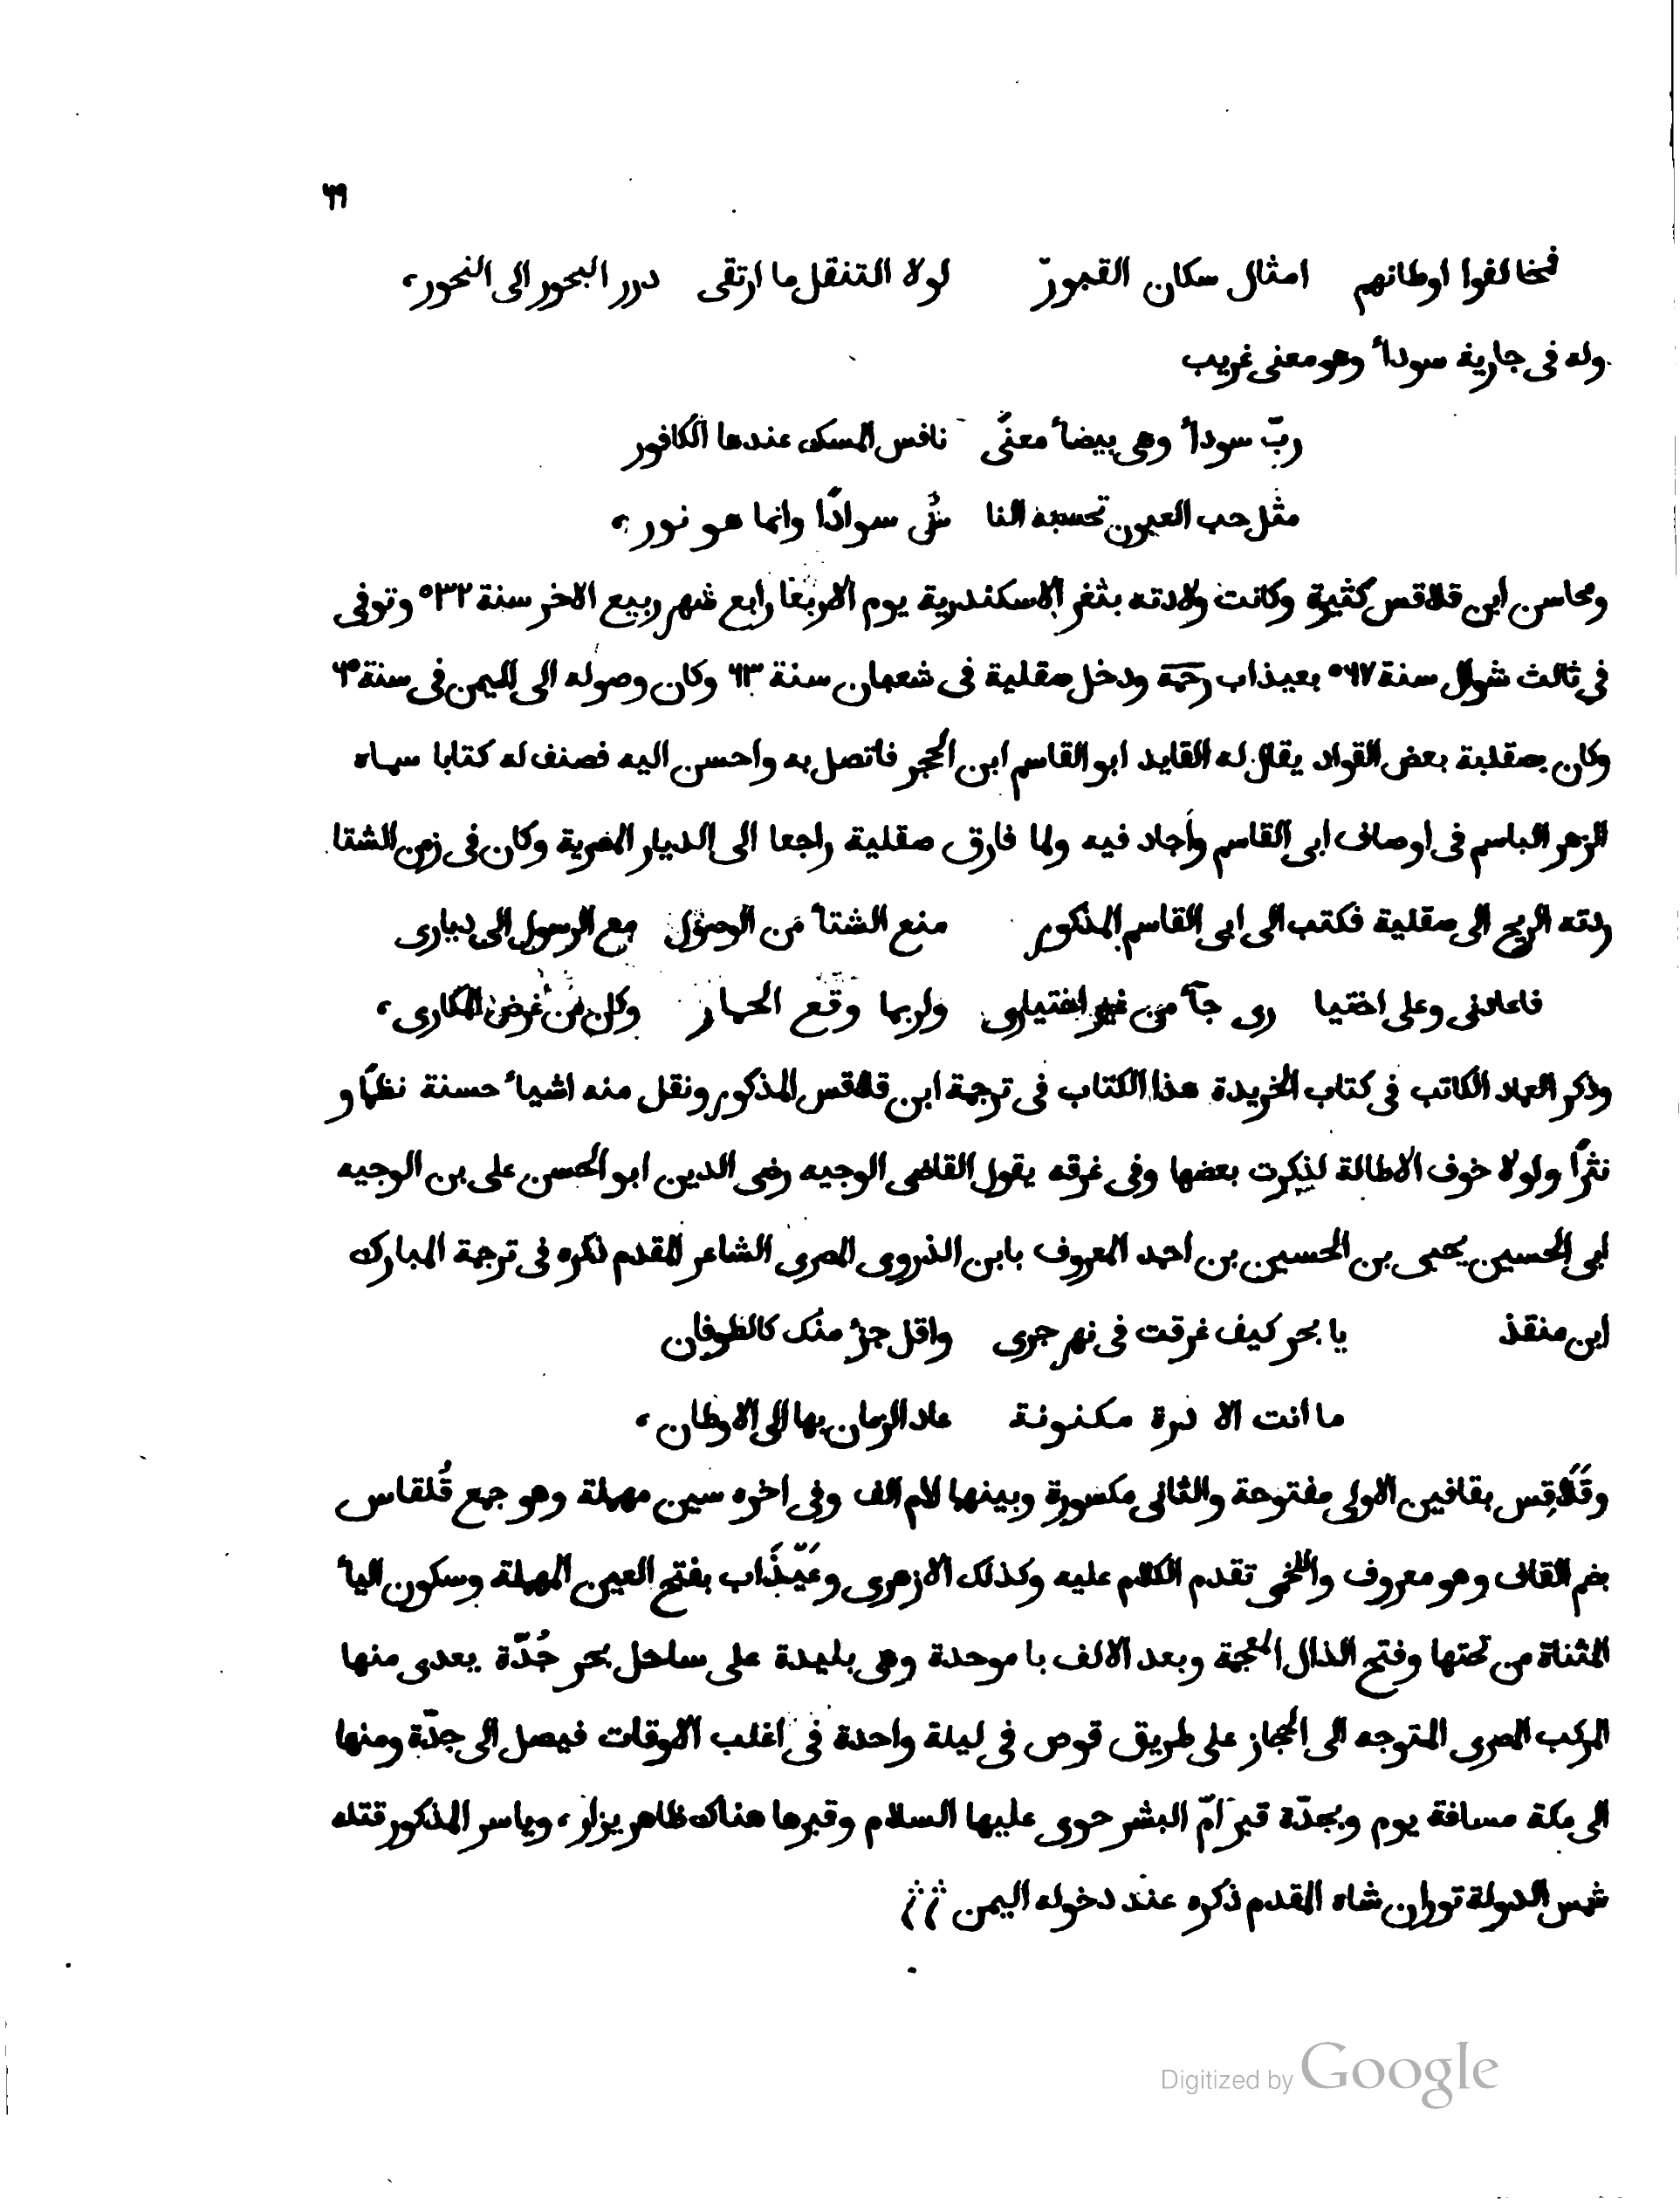 ٦٩
فتخالفوا اوطانهم امثال سكان القبور لولا التنقل ما ارتقى درر البحور الى النحور،
وله فى جارية سودأ وهو معنى غريب
ربّ سودأ وهى بيضأ معنًى نافس المسك عندها الكافور
مثل حب العيون تحسبه النا سُ سوادًا وانما هو نور،
ومحاسن ابن قلاقس كثيرة وكانت ولادته بثغر الاسكندرية يوم الاربعا رابع شهر ربيع الاخر سنة ٥٣٢ وتوفى
فى ثالث شوال سنة ٥٦٧ بعيذاب رحمه ودخل صقلية فى شعبان سنة ٦٣ وكان وصوله الى اليمن فى سنة ٦٥
وكان بصقلية بعض القواد يقال له القايد ابو القاسم ابن الحجر فاتصل به واحسن اليه فصنف له كتابا سماه
الزهر الباسم فى اوصاف ابى القاسم وأجاد فيه ولما فارق صقلية راجعا الى الديار المصرية وكان فى زمن الشتا
ردته الريح الى صقلية فكتب الى ابى القاسم المذكور منع الشتأ من الوصول مع الرسول الى ديارى
فاعادنى وعلى اختيا رى جآ من غير اختيارى ولربما وقع الحمار وكان من غرض المكارى،
وذكر العماد الكاتب فى كتاب الخريدة هذا الكتاب فى ترجمة ابن قلاقس المذكور ونقل منه اشيأ حسنة نظمًا و
نثرًا ولولا خوف الاطالة لذكرت بعضها وفى غرقه يقول القاضى الوجيه رضى الدين ابو الحسن على بن الوجيه
ابى الحسين يحيى بن الحسين بن احمد المعروف بابن الذروى المصرى الشاعر المقدم ذكره فى ترجمة المبارك
ابن منقذ يا بحر كيف غرقت فى نهر جرى واقل جزٔ منك كالطوفان
ما انت الا درة مكنونة عاد الزمان بها الى الاوطان،
وقَلَاقِس بقافين الاولى مفتوحة والثانى مكسورة وبينهما لام الف وفى اخره سين مهملة وهو جمع قُلقاس
بضم القاف وهو معروف واللخمى تقدم الكلام عليه وكذلك الازهرى وعَيْذَاب بفتح العين المهملة وسكون اليأ
المثناة من تحتها وفتح الذال المعجمة وبعد الالف با موحدة وهى بليدة على ساحل بحر جُدّة يعدى منها
المركب المصرى المتوجه الى الحجاز على طريق قوص فى ليلة واحدة فى اغلب الاوقات فيصل الى جدّة ومنها
الى مكة مسافة يوم وبجدّة قبر امّ البشر حوى عليها السلام وقبرها هناك ظاهر يزار، وياسر المذكور قتله
شمس الدولة توران شاه المقدم ذكره عند دخوله اليمن
Digitized by Google